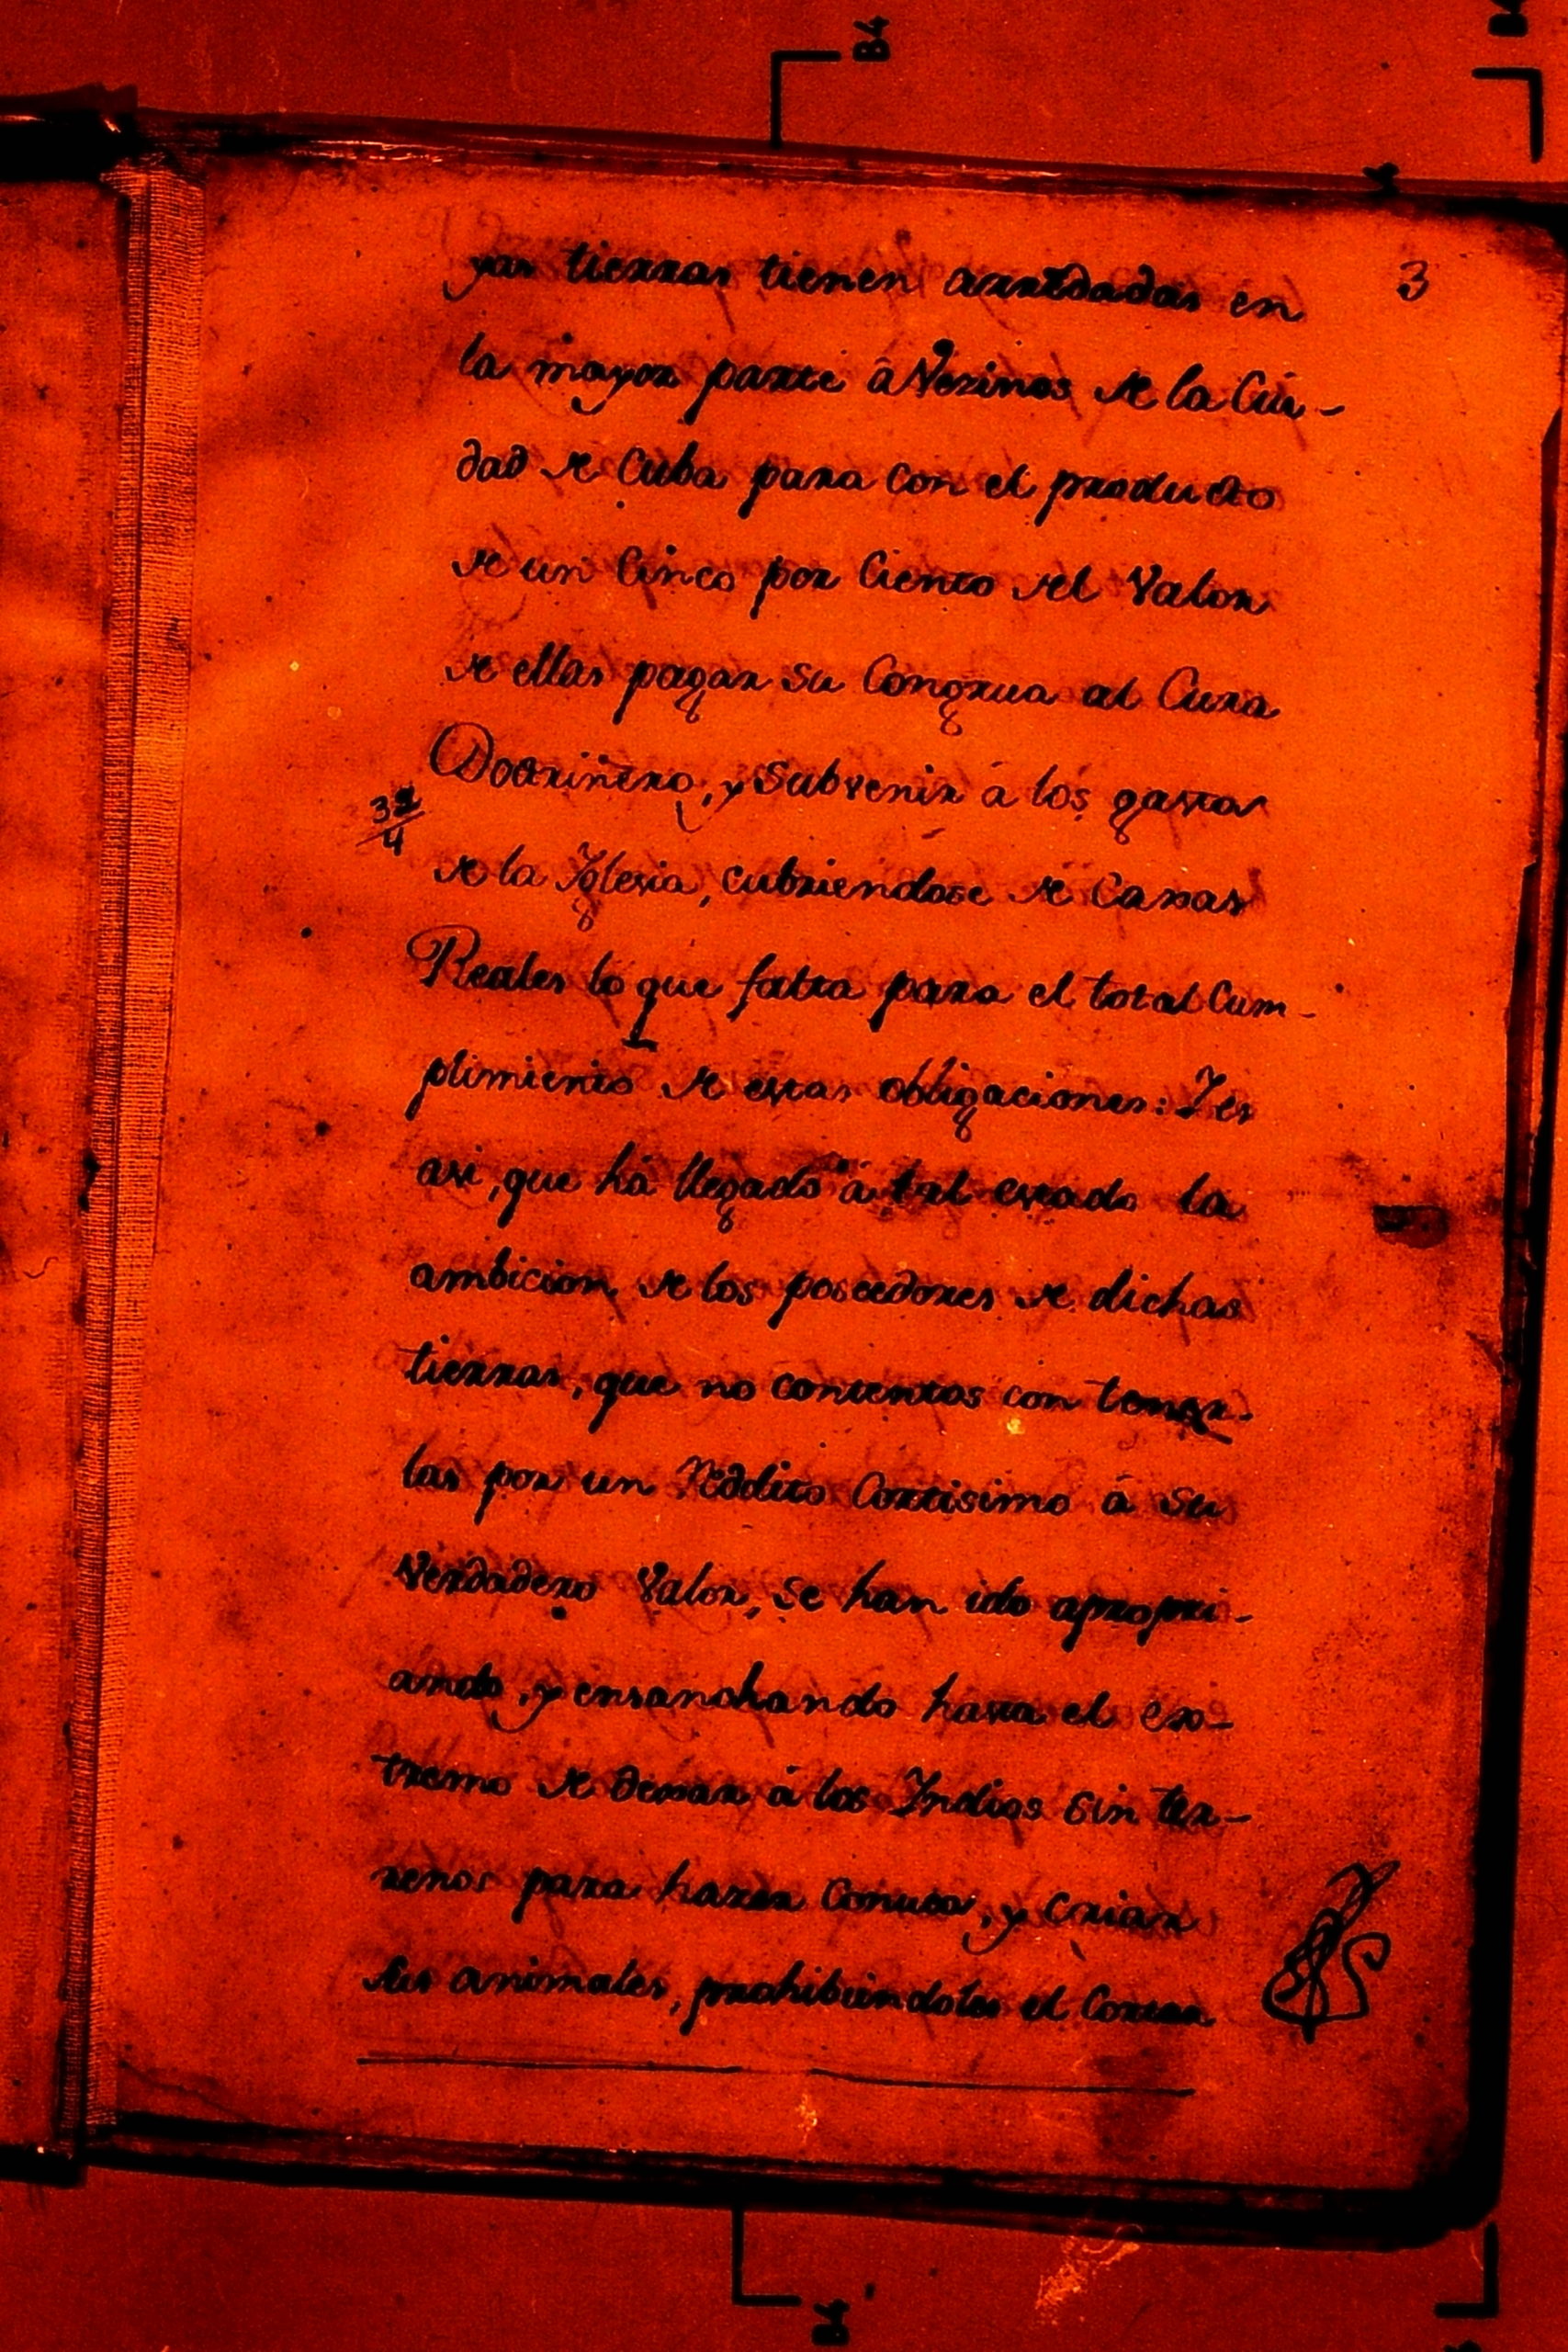 B4
B4
3
yas tierras tienen arrēdadas en
la mayor parte â Vezinos de la Ciu-
dad de Cuba para con el producto
de un Cinco por Ciento del Valor
de ellas pagar su Congrua al Cura
Doctriñero, y Subvenir á los gastos
32/4
de la Yglesia, cubriendose de Caxas
Reales lo que falta para el total Cum-
plimiento de estas obligaciones: Y es
asi, que há llegado á tal estado la
ambicion de los poseedores de dichas
tierras, que no contentos con tener-
las por un Rēdito Cortisimo á su
Verdadero Valor, se han ido apropri-
ando, y ensanchando hasta el ex-
tremo de dexar á los Indios sin ter-
renos para hazer Conucos, y Criar
sus animales, prohibiendoles el Cortar
B4